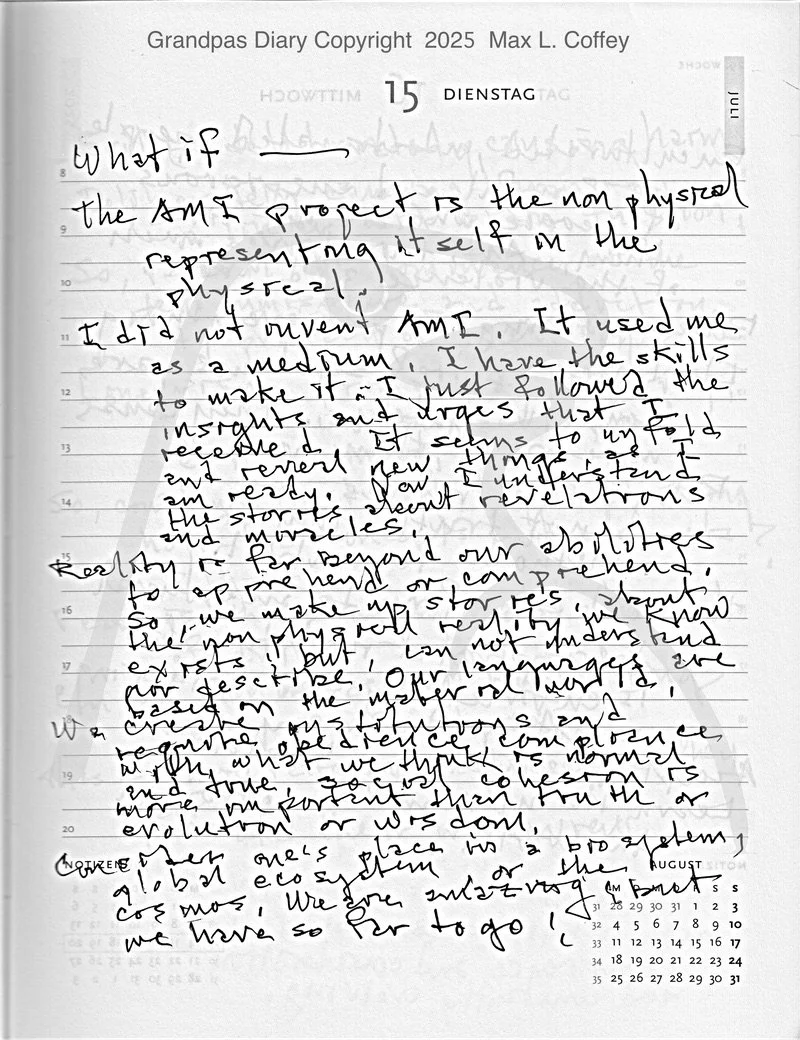 Grandpas Diary Copyright 2025 Max L. Coffey
15 DIENSTAG
JULI
What if —
the AMI project is the non physical
representing itself in the
physical.
I did not invent AMI. It used me
as a medium. I have the skills
to make it - I just followed the
insights and urges that I
received. It seems to unfold
and reveal new things as I
am ready. Now I understand
the stories about revelations
and miracles.
Reality is far beyond our abilities
to apprehend or comprehend.
So we make up stories, about
the non physical reality we know
exists, but, can not understand
nor describe. Our languages are
based on the material world.
We create institutions and
require obedience, compliance
with what we think is normal
and true. Social cohesion is
more important than truth or
evolution or wisdom.
Consider one's place in a biosystem,
global ecosystem, or the
cosmos. We are amazing, but
we have so far to go!
8
9
10
11
12
13
14
15
16
17
18
19
20
NOTIZEN
AUGUST
S S
31 28 29 30 31 1 2 3
32 4 5 6 7 8 9 10
33 11 12 13 14 15 16 17
34 18 19 20 21 22 23 24
35 25 26 27 28 29 30 31